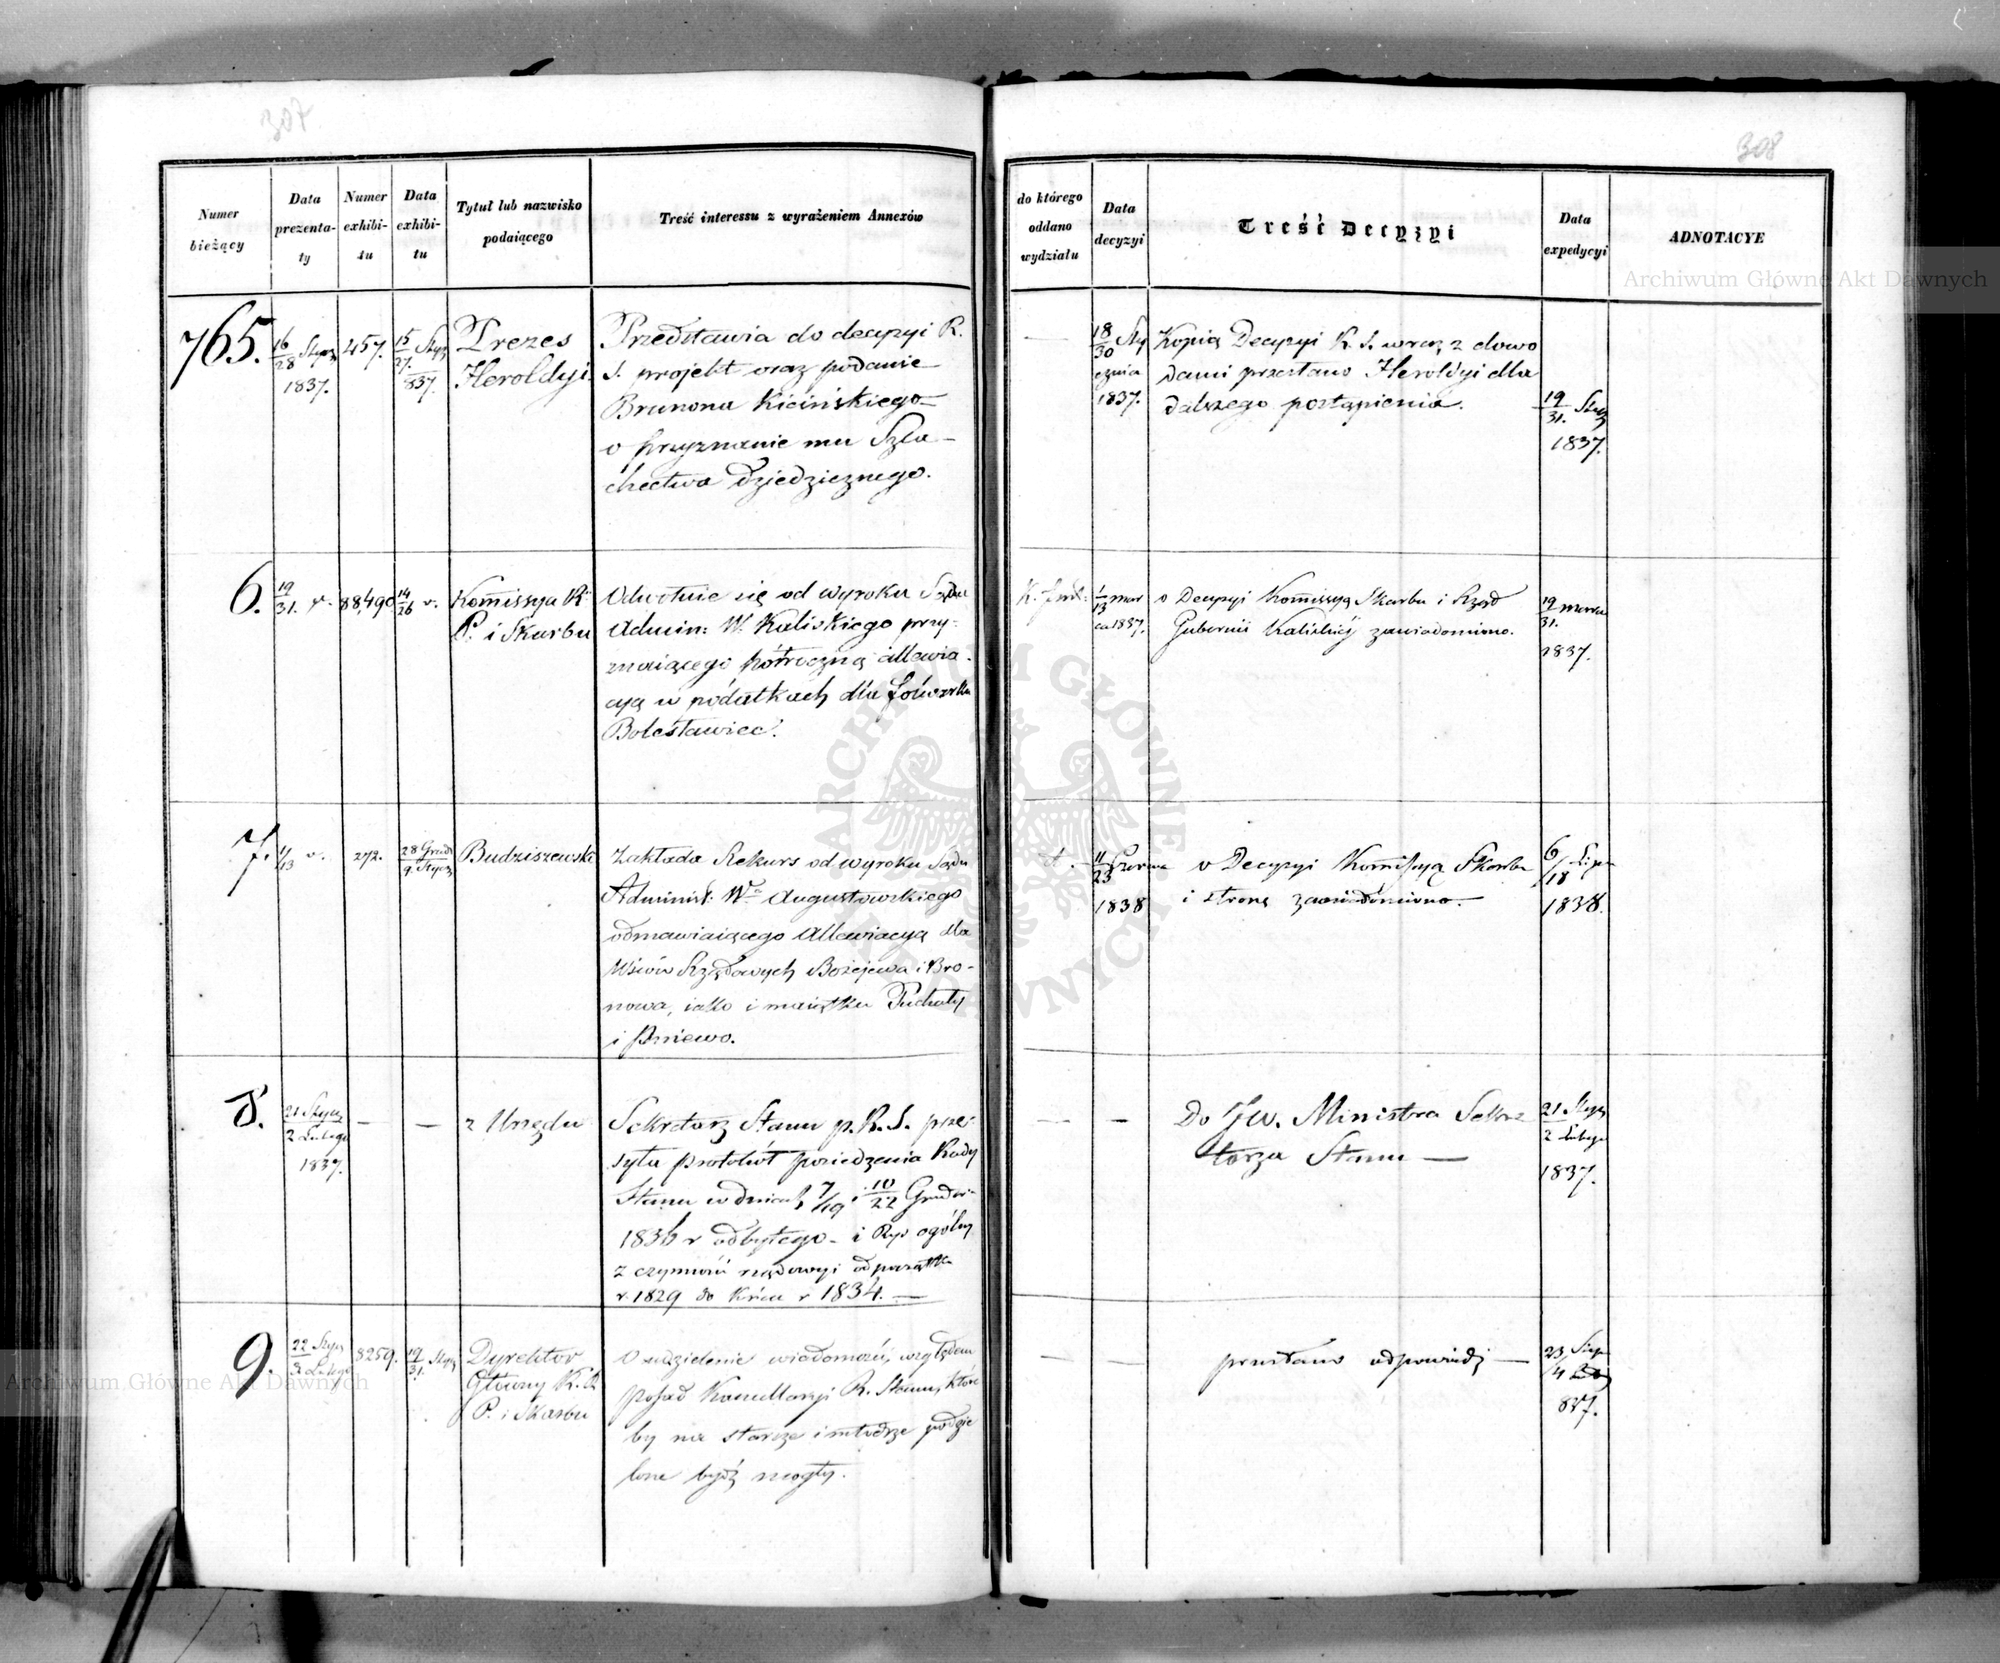 307
Numer bieżący
Data prezenta-ty
Numer exhibi-tu
Data exhibi-tu
Tytuł lub nazwisko podaiącego
Treść interessu z wyrażeniem Annexów
765.
16/28 Stycz
1837.
457.
15/27. Stycz
837.
Prezes
Heroldyi.
Przedstawia do decyzyi R.
S. projekt oraz podanie
Brunona Kicińskiego
o przyznanie mu Szla-
chectwa dziedzicznego.
6.
19/31. r.
88,490
14/26 r.
Kommissya R.
P. i Skarbu
Odwołuie się od wyroku Sądu
Admin: W. Kaliskiego przy-
znaiącego półroczną allewia-
cyą w podatkach dla folwarku
Bolesławiec.
7.
1/13 r.
272.
28 Grud
9. Stycz
Budziszewski
Zakłada Rekurs od wyroku Sądu
Administ: Wa Augustowskiego
odmawiaiącego Allewiacyą dla
Wsiów Rządowych Bożejewa i Bro-
nowa, iako i maiątku Puchały
i Pniewo.
8.
21 Stycz
2 Lutego
1837.
—
—
z Urzędu
Sekretarz Stanu p. R. S. prze-
syła protokół posiedzenia Rady
Stanu w dniach 7/19 i 10/22 Grudnia
1836 r odbytego - i Rys ogólny
z czynności rządowyi od początku
r. 1829 do końca r 1834. —
9.
22 Stycz
3 Lutego
8259.
19/31. Stycz
Dyrektor
Główny K. R.
P. i Skarbu
O udzielenie wiadomości, względem
posad Kancellaryi R. Stanu, które
by na starsze i młodsze podzie
lone bydź mogły.
308
do którego oddano wydziału
Data decyzyi
Treść Decyzyi
Data expedycyi
ADNOTACYE
—
18/30 Sty
cznia
1837.
Kopią Decyzyi R. S. wraz z dowo
dami przesłano Heroldyi dla
dalszego postąpienia.
19/31. Stycz
1837.
1/13 mar
ca 1837.
o Decyzyi Kommissyą Skarbu i Rząd
Gubernii Kaliskiéj zawiadomiono.
19/31. marca
1837.
11/23 Czerwca
1838
o Decyzyi Kommissyą Skarbu
i stronę zawiadomiono. —
6/18 Lipca
1838.
—
—
Do JW. Ministra Sekre
tarza Stanu —
21 Stycz
2 Lutego
1837.
—
—
przesłano odpowiedź —
23 Stycz
837.
Archiwum Główne Akt Dawnych
ARCHIWUM GŁÓWNE AKT DAWNYCH
Archiwum Główne Akt Dawnych